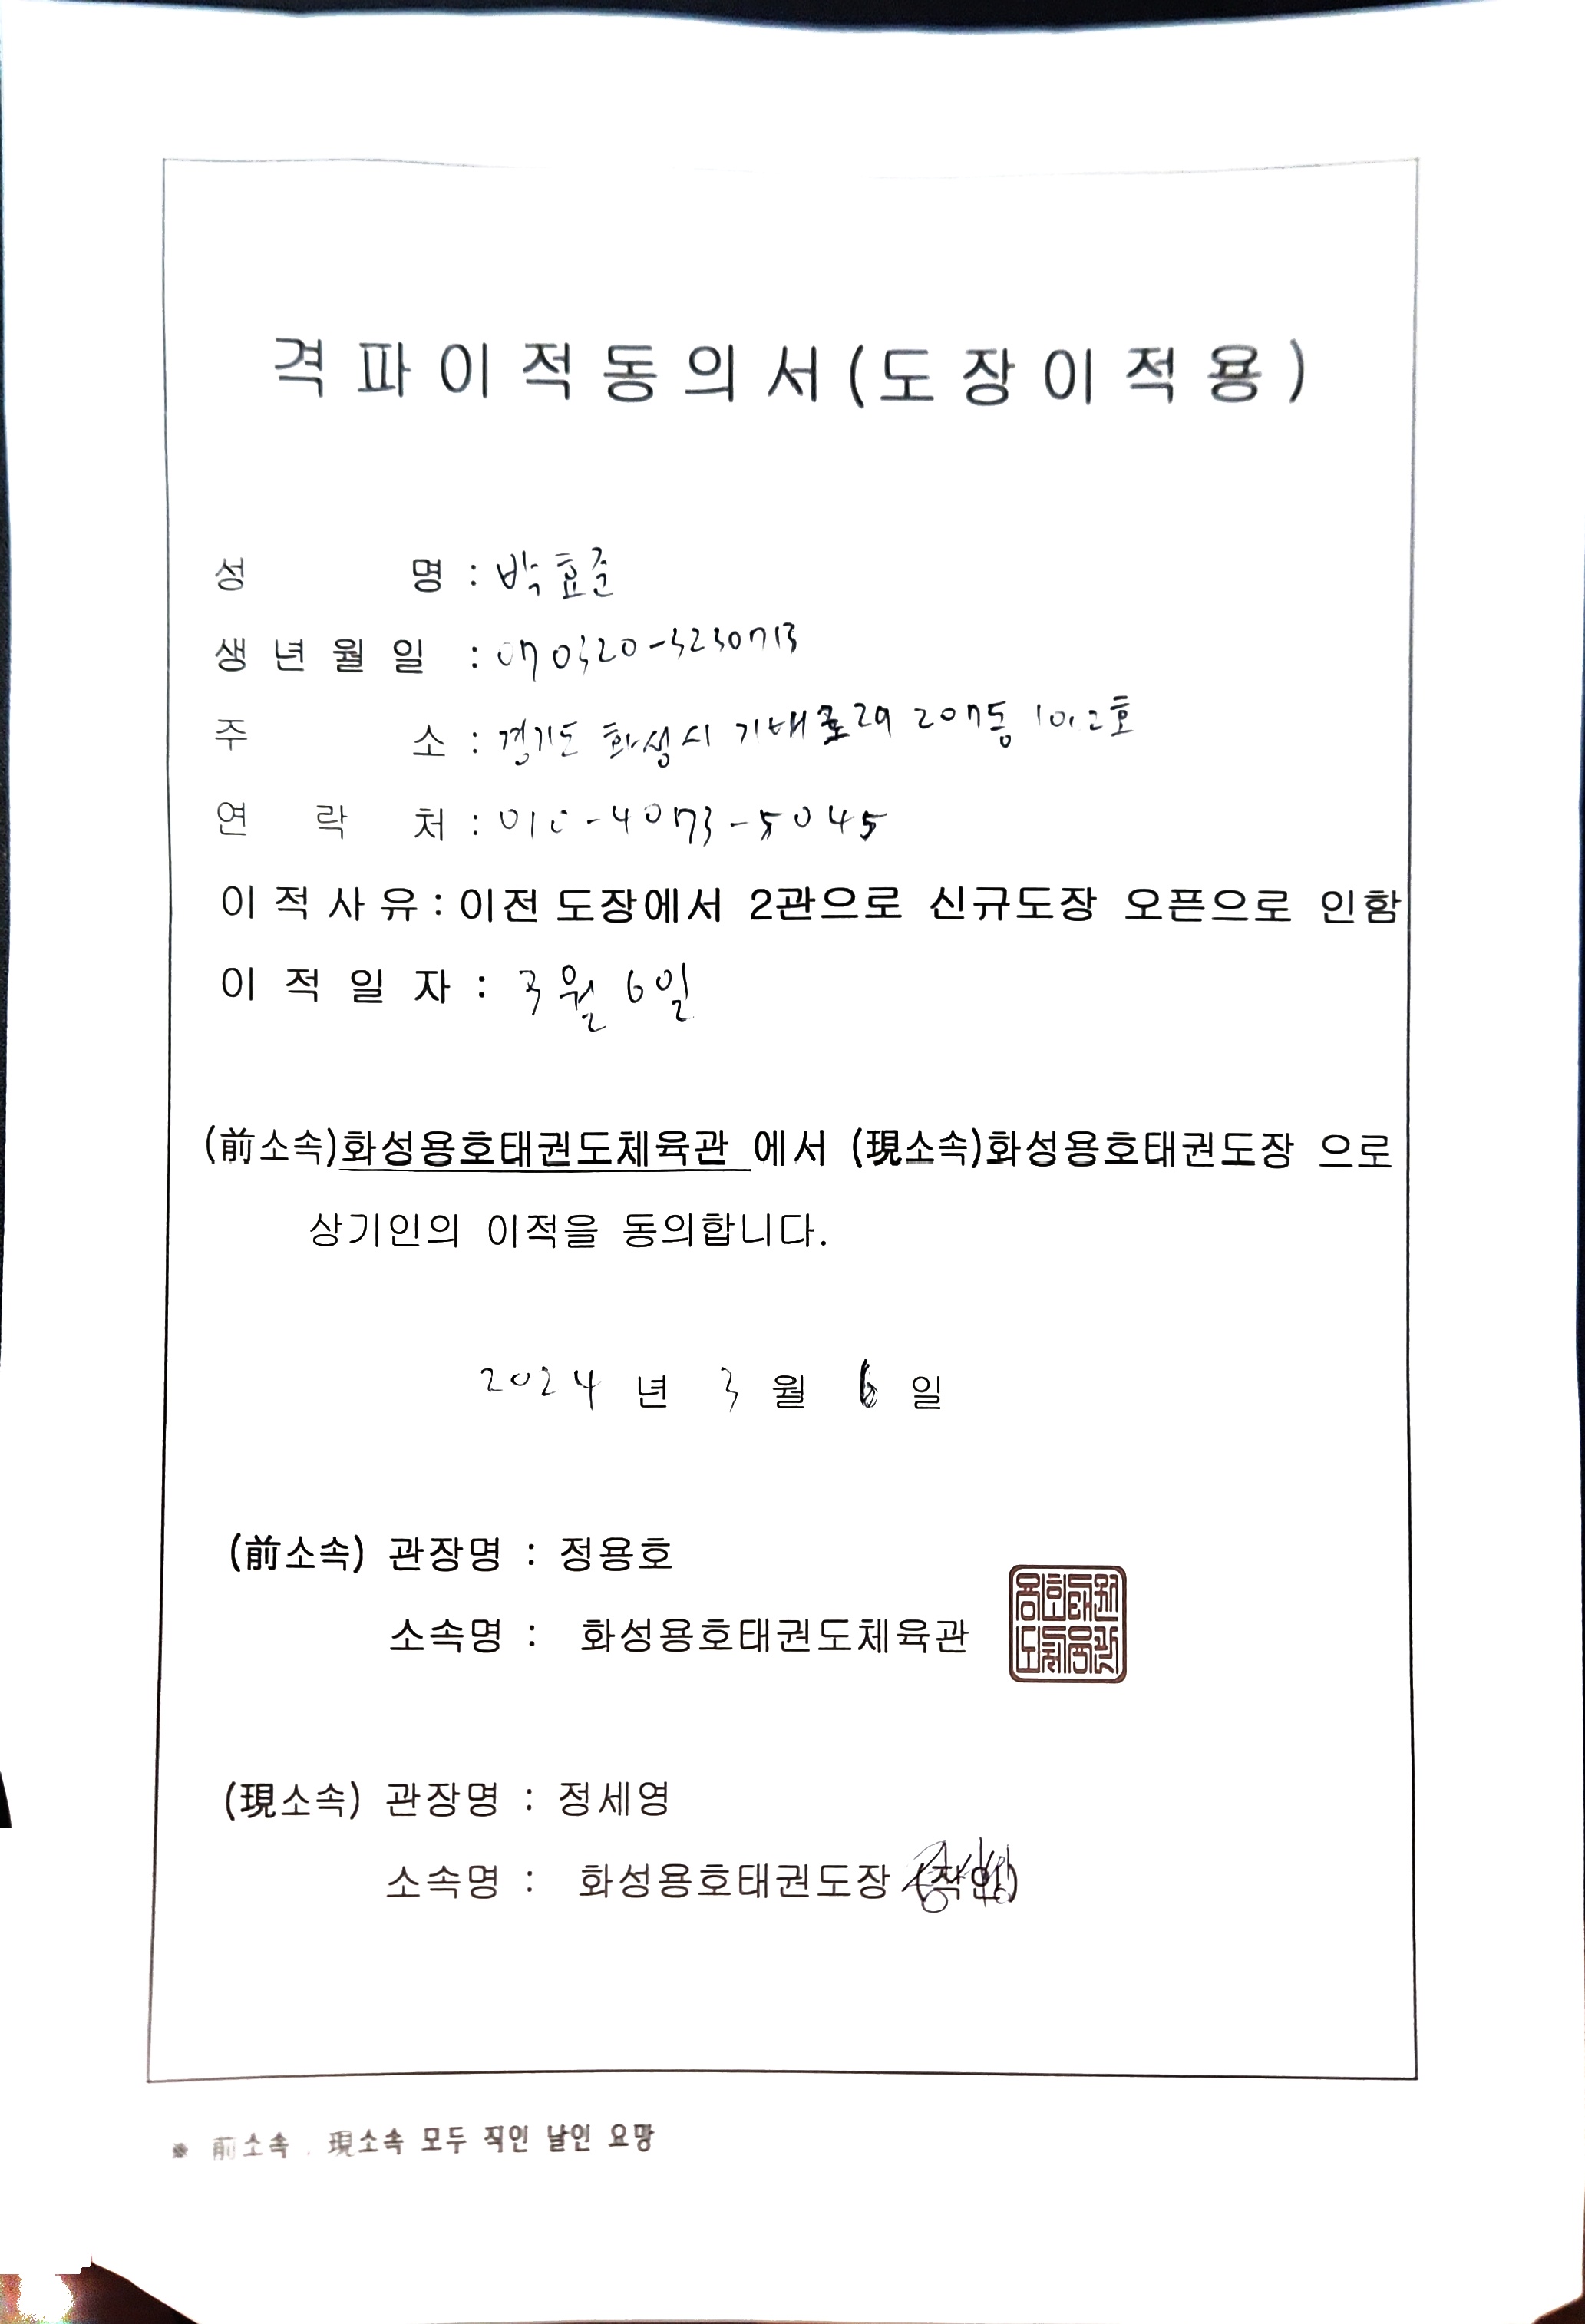 격파이적동의서(도장이적용)
성 명 : 박효준
생년월일 : 070320-3230713
주 소 : 경기도 화성시 기배로29 207동 1012호
연 락 처 : 010-4073-5045
이적사유 : 이전 도장에서 2관으로 신규도장 오픈으로 인함
이 적 일 자 : 3월 6일
(前소속)화성용호태권도체육관 에서 (現소속)화성용호태권도장 으로
상기인의 이적을 동의합니다.
2024 년 3 월 6 일
(前소속) 관장명 : 정용호
소속명 : 화성용호태권도체육관
용호태권도체육관
(現소속) 관장명 : 정세영
소속명 : 화성용호태권도장 (직인)
※ 前소속 , 現소속 모두 직인 날인 요망